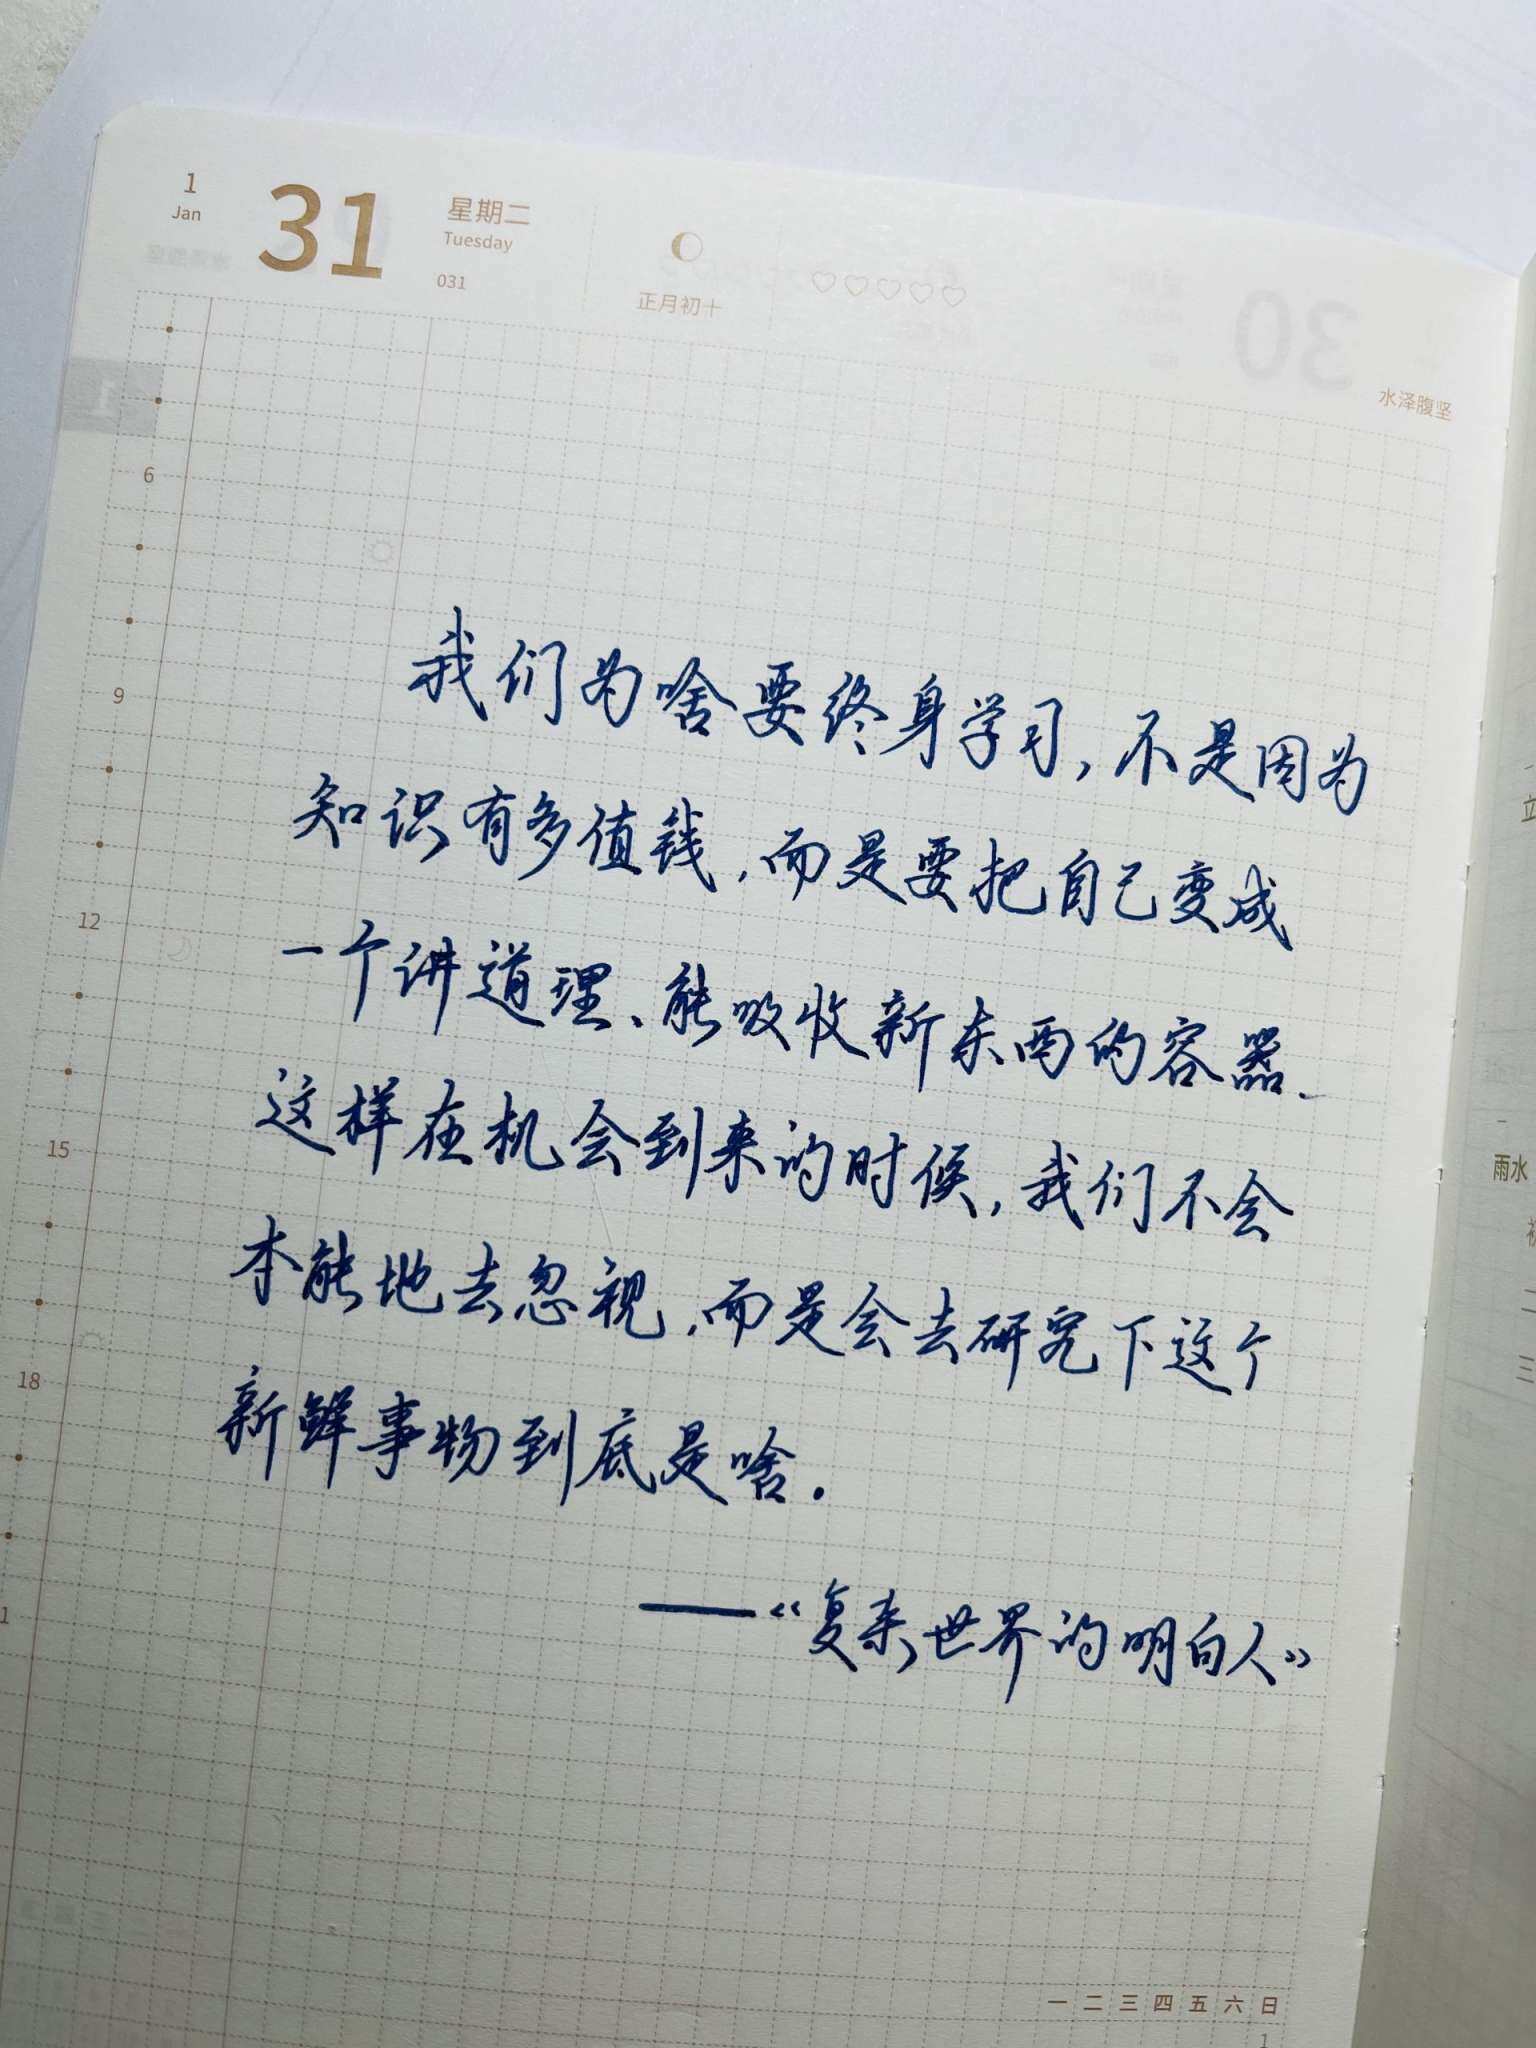 1
Jan
31
星期二
Tuesday
031
正月初十
水泽腹坚
30
1
6
9
12
15
18
我们为啥要终身学习，不是因为
知识有多值钱，而是要把自己变成
一个讲道理、能吸收新东西的容器、
这样在机会到来的时候，我们不会
本能地去忽视，而是会去研究下这个
新鲜事物到底是啥．
——《复杂世界的明白人》
一 二 三 四 五 六 日
1
雨水